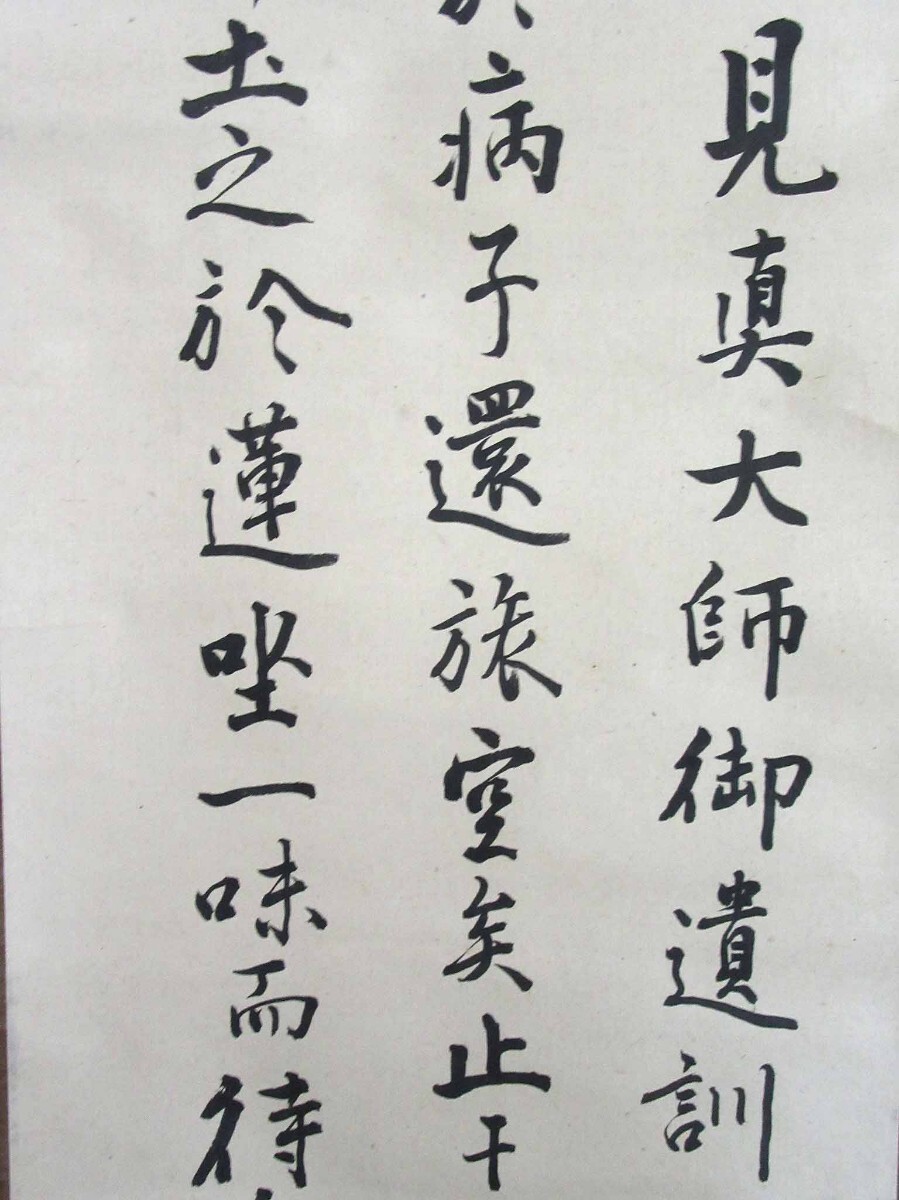 見真大師御遺訓
於病子還旅空矣止于
土之於蓮坐一味而待